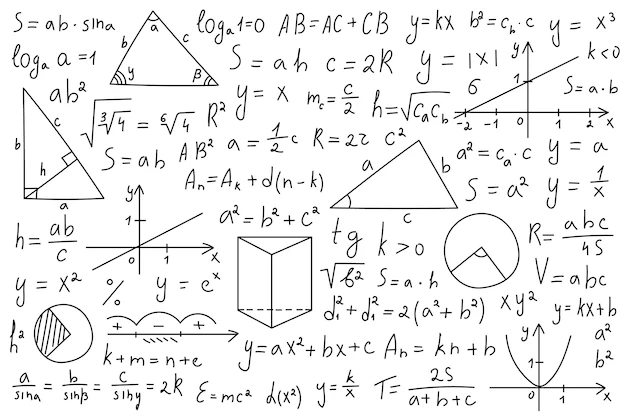 S = ab · sina
log_a 1=0
AB=AC+CB
y=kx
b²=c_b·c
y = x³
log_a a =1
a
b
c
γ
β
S = ah
c = 2R
y = |x|
y
k<0
ab²
√∛4 = ⁶√4
R²
y = x
m_c= c/2
h=√c_a c_b
б
1
S=a·b
-2 -1 0 1 2 x
b
c
h
a
S = ab
AB²
a = 1/2 c
R = 2r
c²
a
b
c
a²=c_a·c
y = a
A_n=A_k+d(n-k)
S = a²
y = 1/x
h= ab/c
y
1
0
1
x
a²=b²+c²
tg
k>0
R= abc/4S
y = x²
%
y = e^x
√b²
S=a·h
V=abc
h²
+ - +
d₁²+d₁²=2(a²+b²)
xy²
y=kx+b
k+m=n+e
y=ax²+bx+c
A_n= kn+b
y
1
0
1
x
a²
b²
a/sina = b/sinβ = c/sinγ =2R
E=mc²
d(x²)
y= k/x
T= 2S/a+b+c